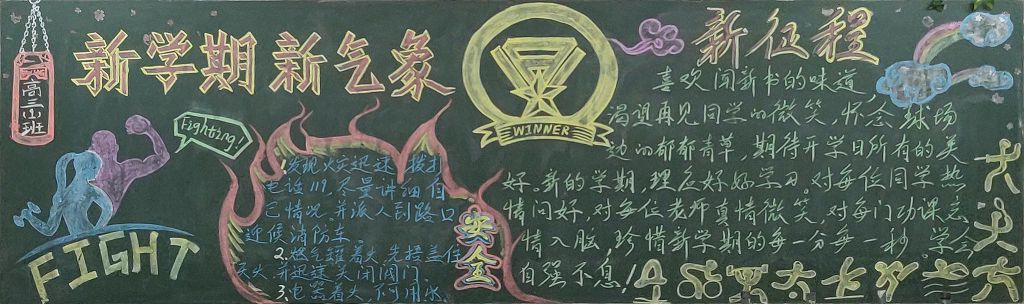 高三
班
新学期 新气象
Fighting!
FIGHT
1.发现火灾迅速拨打
电话119.尽量讲细自
己情况.并派人到路口
迎候消防车.
2.燃气罐着火,先捂盖住
灭火,并迅速关闭阀门.
3.电器着火,不可用水.
安全
WINNER
新征程
喜欢闻新书的味道
渴望再见同学的微笑,怀念球场
边的郁郁青草,期待开学日所有的美
好.新的学期,理应好好学习.对每位同学热
情问好,对每位老师真情微笑,对每门功课忘
情入脑,珍惜新学期的每一分每一秒.学会
自强不息!